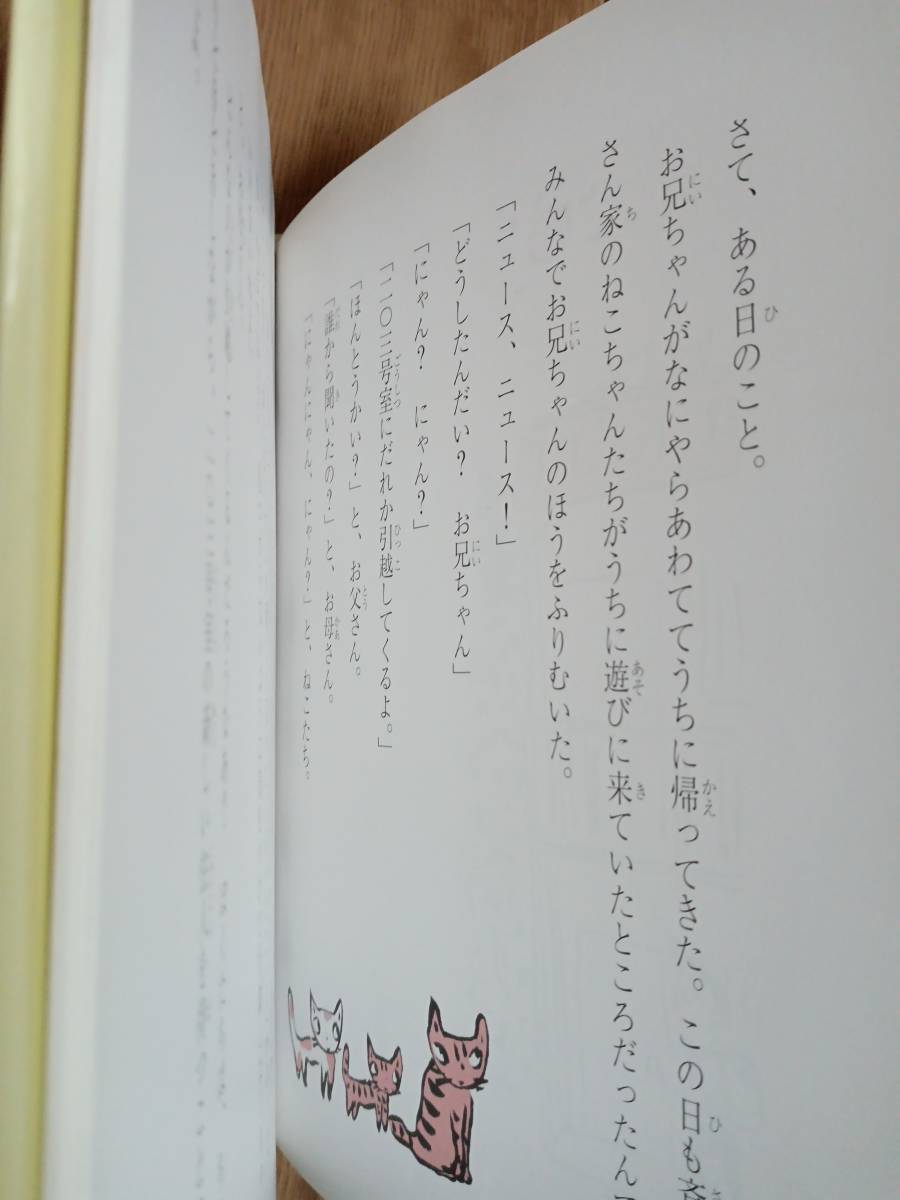 さて、ある日のこと。
お兄ちゃんがなにやらあわててうちに帰ってきた。この日も
さん家のねこちゃんたちがうちに遊びに来ていたところだったん
みんなでお兄ちゃんのほうをふりむいた。
「ニュース、ニュース！」
「どうしたんだい？　お兄ちゃん」
「にゃん？　にゃん？」
「二〇三号室にだれか引越してくるよ。」
「ほんとうかい？」と、お父さん。
「誰から聞いたの？」と、お母さん。
「にゃんにゃん、にゃん？」と、ねこたち。